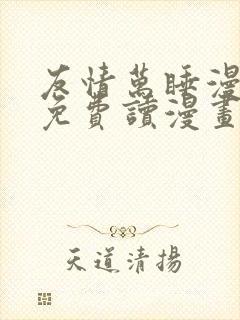 友情萬睡漫
免費讀漫畫
天道清揚